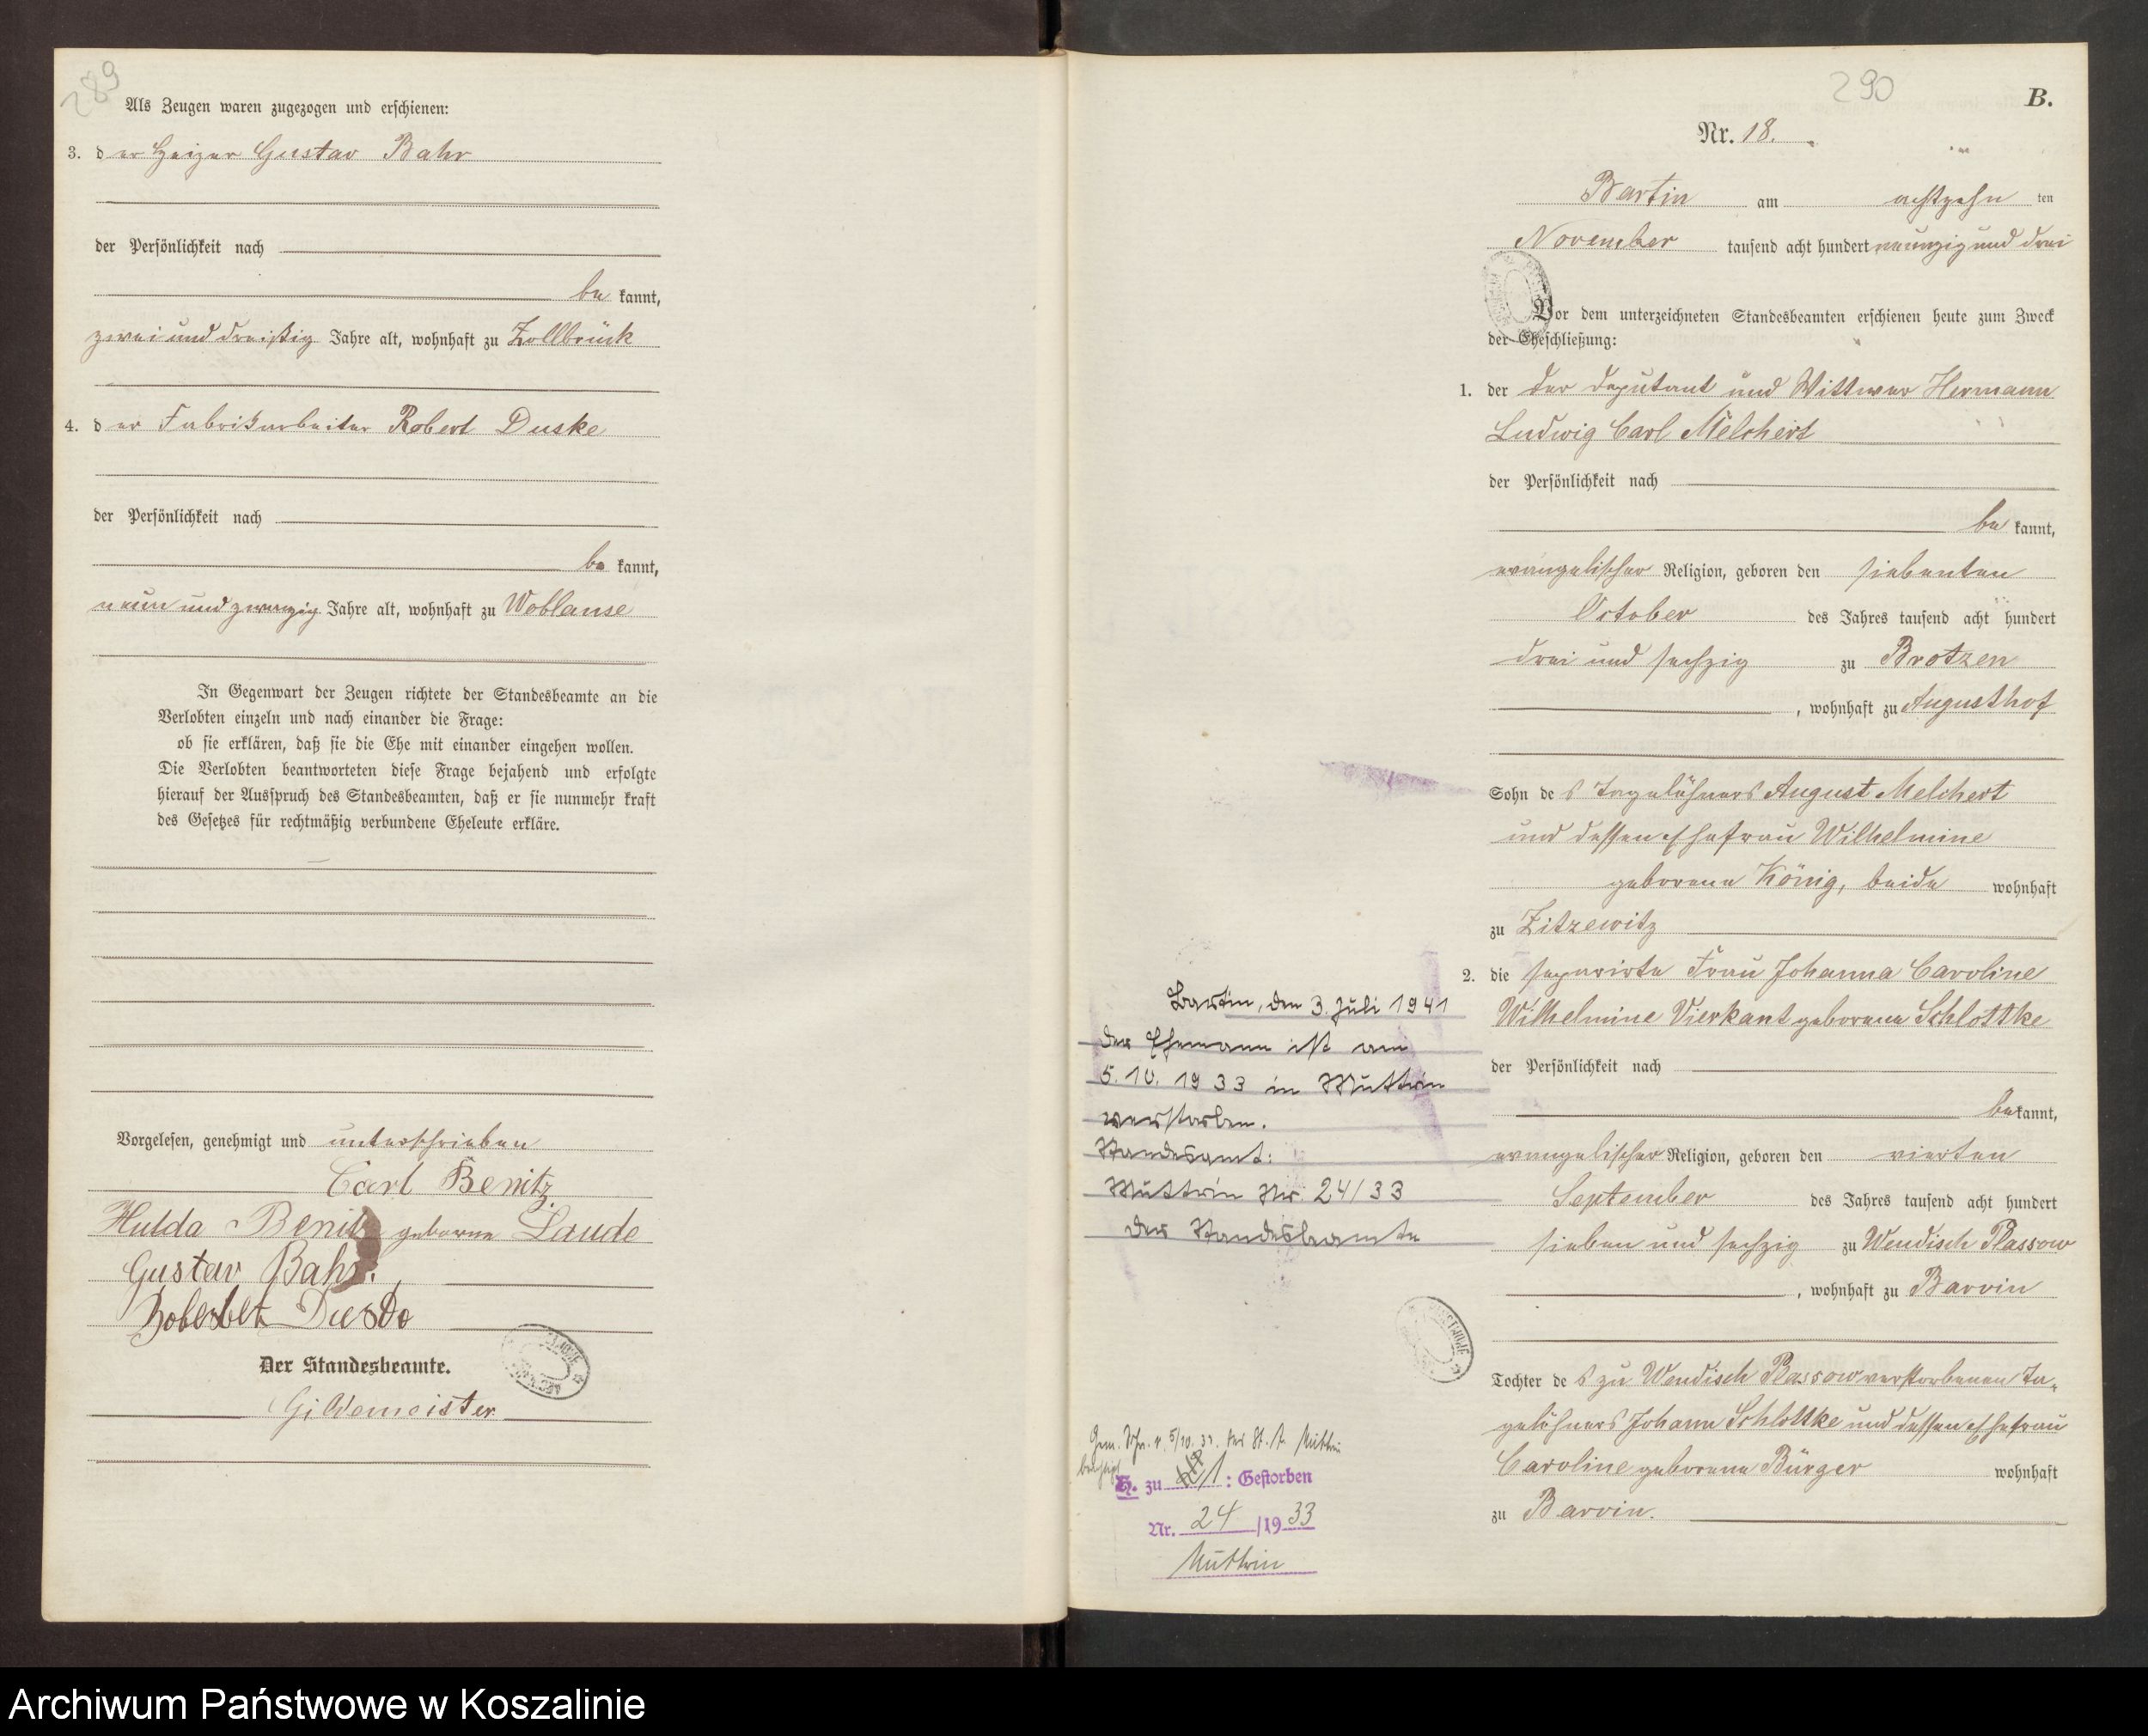 289
Als Zeugen waren zugezogen und erschienen:
3. der Heizer Gustav Bahr
der Persönlichkeit nach
bekannt,
zwei und dreißig Jahre alt, wohnhaft zu Zollbrück
4. der Fabrikarbeiter Robert Duske
der Persönlichkeit nach
bekannt,
neun und zwanzig Jahre alt, wohnhaft zu Woblanse
In Gegenwart der Zeugen richtete der Standesbeamte an die
Verlobten einzeln und nach einander die Frage:
ob sie erklären, daß sie die Ehe mit einander eingehen wollen.
Die Verlobten beantworteten diese Frage bejahend und erfolgte
hierauf der Ausspruch des Standesbeamten, daß er sie nunmehr kraft
des Gesetzes für rechtmäßig verbundene Eheleute erkläre.
Vorgelesen, genehmigt und unterschrieben
Carl Benitz
Hulda Benitz geborene Laude
Gustav Bahr.
Der Standesbeamte.
Gildemeister
290
B.
Nr. 18.
Bartin am achtzehnten
November tausend acht hundert neunzig und drei
Vor dem unterzeichneten Standesbeamten erschienen heute zum Zweck
der Eheschließung:
1. der der Deputant und Wittwer Hermann
Ludwig Carl Melchert
der Persönlichkeit nach
bekannt,
evangelischer Religion, geboren den siebenten
October des Jahres tausend acht hundert
drei und sechzig zu Brotzen
, wohnhaft zu Augusthof
Sohn des Tagelöhners August Melchert
und dessen Ehefrau Wilhelmine
geborene König, beide wohnhaft
zu Zitzewitz
2. die separirte Frau Johanna Caroline
Wilhelmine Vierkant geborene Schlottke
der Persönlichkeit nach
bekannt,
evangelischer Religion, geboren den vierten
September des Jahres tausend acht hundert
sieben und sechzig zu Wendisch Plassow
, wohnhaft zu Barvin
Tochter des zu Wendisch Plassow verstorbenen Ta-
gelöhners Johann Schlottke und dessen Ehefrau
Caroline geborene Bürger wohnhaft
zu Barvin.
Bartin, den 3. Juli 1941
Der Ehemann ist am
5.10.1933 in Muttrin
verstorben.
Standesamt:
Muttrin Nr. 24/33
Der Standesbeamte
H. zu 1: Gestorben
Nr. 24/1933
Muttrin
Archiwum Państwowe w Koszalinie